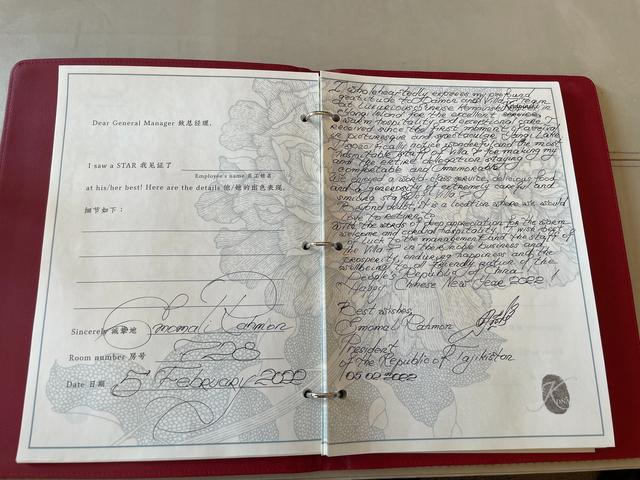 Dear General Manager 致总经理,
I saw a STAR 我见证了
Employee's name 员工姓名
at his/her best! Here are the details 他/她的出色表现。
细节如下:
Sincerely 诚挚地 Emomali Rahmon
Room number 房号 728
Date 日期 5 February 2022
I wholeheartedly express my profound
gratitude to Damon and Villa 7 team
at luxurious Sunrise Kempinski in
Island for the excellent services,
warm hospitality and exceptional care I
received since the first moment of arrival
picturesque and spectacular Yanqi Lake.
I specifically notice wonderful and the most
staff of Villa 7 for making my
and the entire delegation staying
comfortable and memorable.
We enjoyed a world class service, delicious food
and a generosity of extremely careful and
smiling staff of Villa 7.
Beyond doubt, it is a location where we would
love to return to.
With the words of deep appreciation for the warm
welcome and cordial hospitality I wish best
of luck to the management and the staff of
the Villa 7 in their noble business and
prosperity, enduring happiness and the
wellbeing to all friendly nation of the
People's Republic of China.
Happy Chinese New Year 2022!
Best wishes,
Emomali Rahmon
President
of the Republic of Tajikistan
05.02.2022